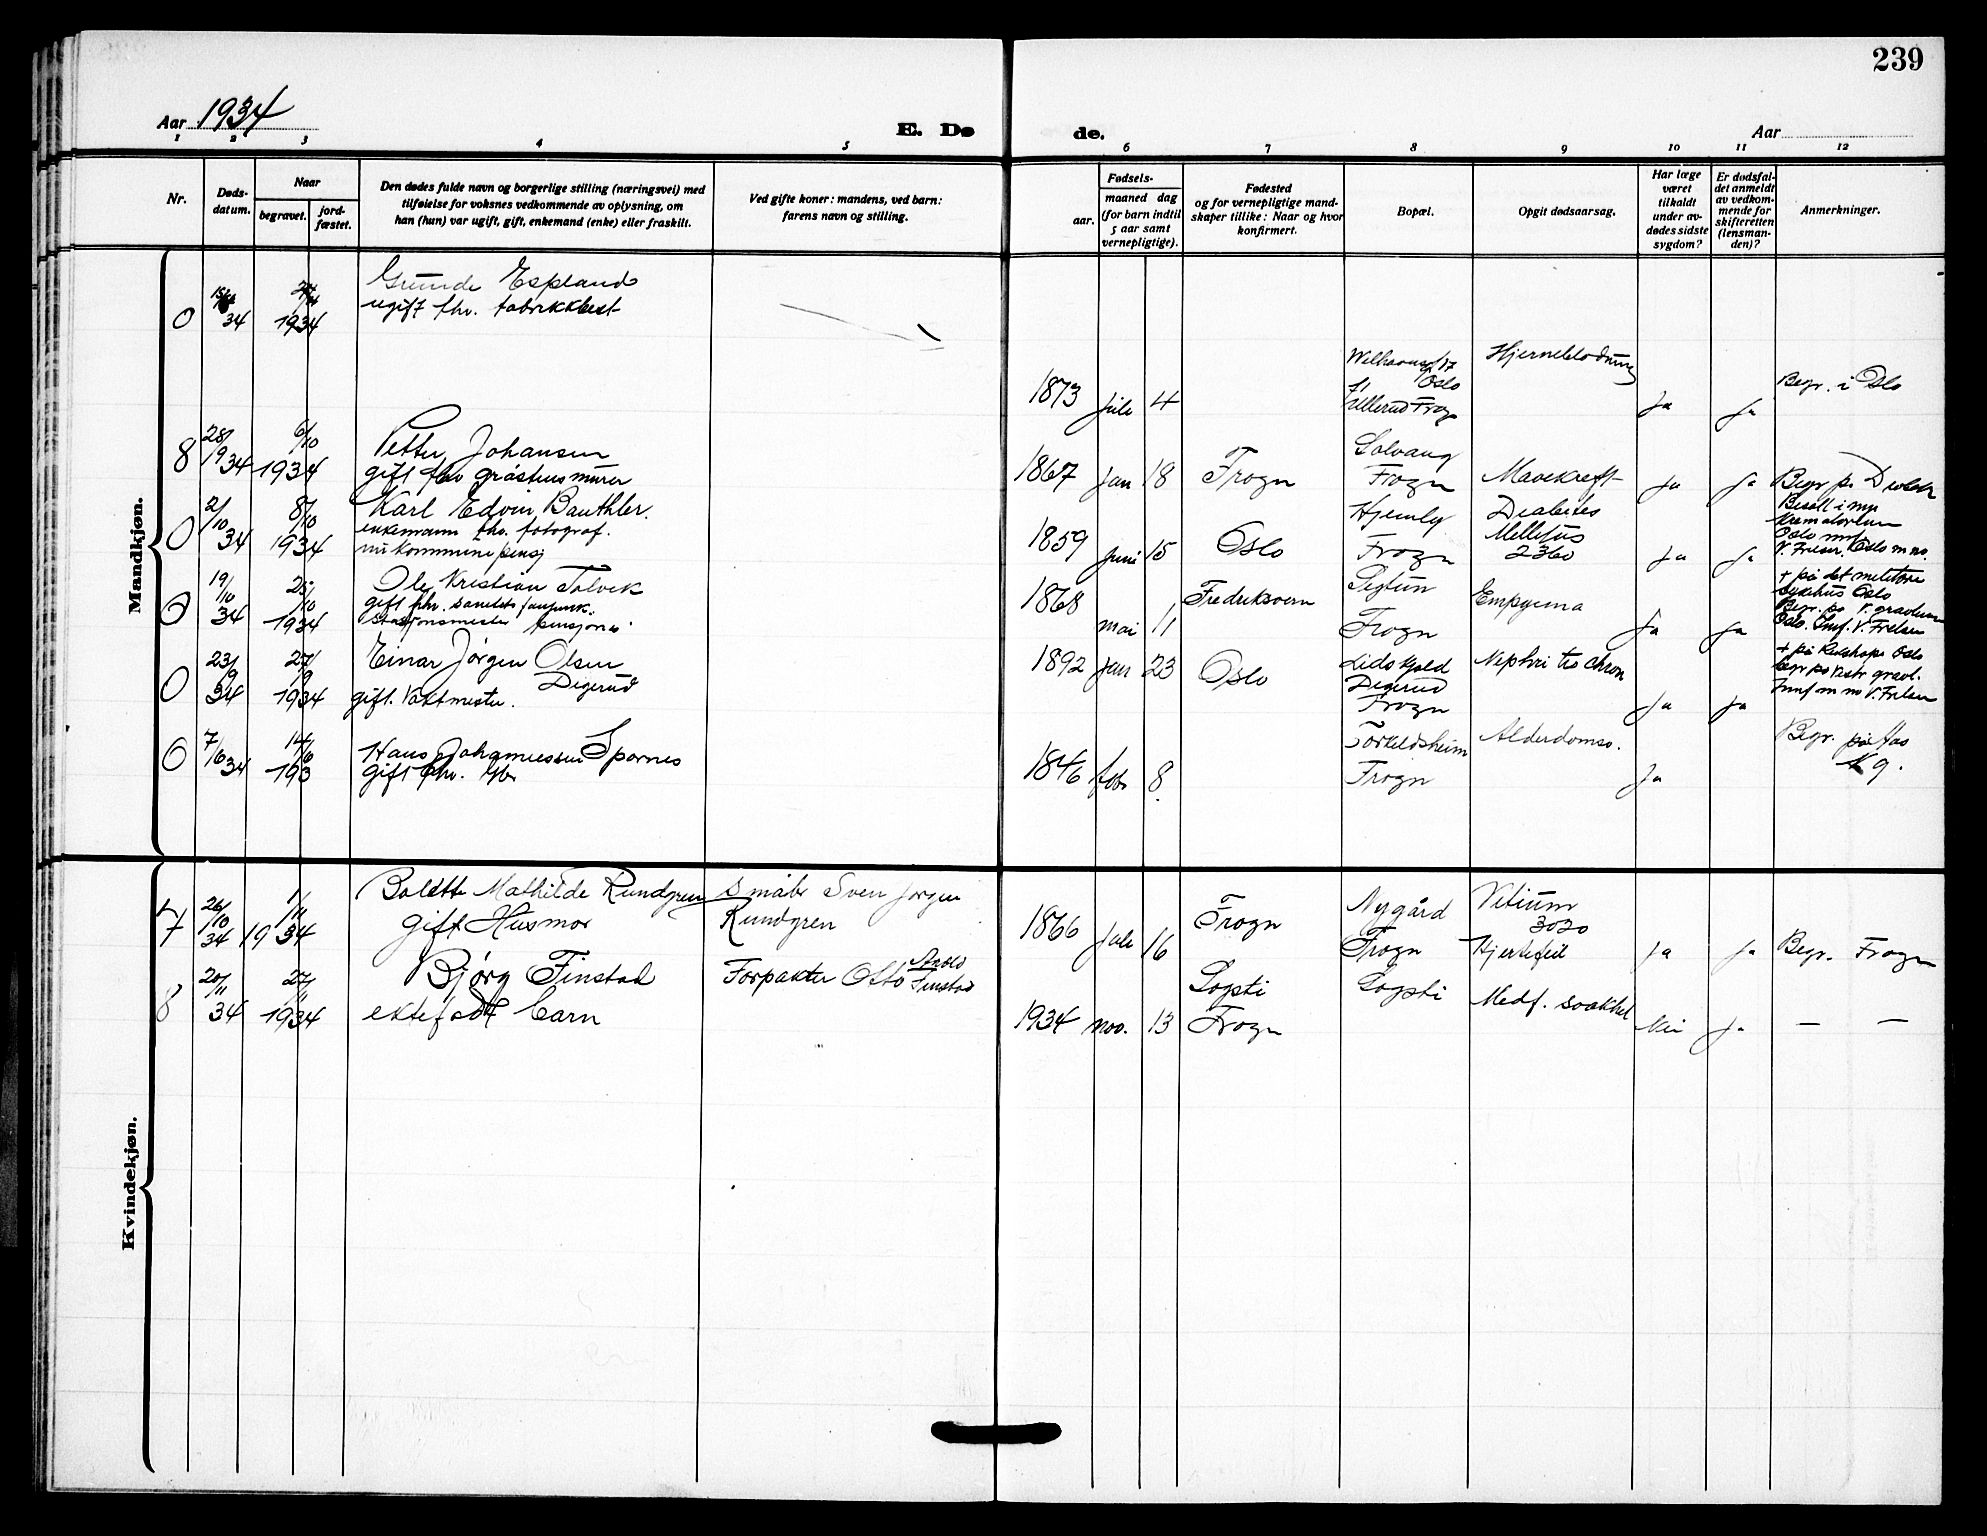 239
Aar 1934
E. Dø
de.
Aar
1 2 3 4 5 6 7 8 9 10 11 12
Nr.
Døds-
datum.
Naar
begravet.
jord-
fæstet.
Den dødes fulde navn og borgerlige stilling (næringsvei) med
tilføielse for voksnes vedkommende av oplysning, om
han (hun) var ugift, gift, enkemand (enke) eller fraskilt.
Ved gifte koner: mandens, ved barn:
farens navn og stilling.
Fødsels-
aar.
maaned dag
(for barn indtil
5 aar samt
vernepligtige).
Fødested
og for vernepligtige mand-
skaper tillike: Naar og hvor
konfirmert.
Bopæl.
Opgit dødsaarsag.
Har læge
været
tilkaldt
under av-
dødes sidste
sygdom?
Er dødsfal-
det anmeldt
av vedkom-
mende for
skifteretten
(lensman-
den)?
Anmerkninger.
Mandkjøn.
0 34 1934
Gunde Espland
ugift fhv. fabrikkbest
1873 juli 4
Oslo
Ullerud Frogn
Hjerneblødning
Ja Ja
Begr. i Oslo
8 28/9 34 6/10 1934
Petter Johansen
gift fhv gråstensmurer
1867 Jan 18 Frogn
Solvang
Frogn
Mavekreft
Ja Ja
Begr på
0 2/10 34 8/10 1934
Karl Edvin Bauthler.
enkemann fhv. fotograf.
nu kommunepensj
1859 Juni 15 Oslo
Hjemly
Frogn
Diabetes
Mellitus
2360
Ja Ja
Bisatt i nye
Krematorium
Oslo
V. Frelser. Oslo m no.
0 19/10 34 25/10 1934
Ole Kristian Tolvek
gift fhv. sanitets
stasjonsmester pensjones
1868 mai 11 Fredriksvern
Sigtun
Frogn
Empyema
Ja Ja
+ på det militære
sykehus Oslo
Begr. på V. gravlund
Oslo. Innf. V. Frelser
0 23/9 34 27/9 1934
Einar Jørgen Olsen
Digerud
gift. Vaktmester.
1892 Jan 23 Oslo
Lidskjold
Digerud
Frogn
Nephritis chron
Ja Ja
+ på Oslo
begr på Vestr gravl.
Innf m no V. Frelser
0 7/6 34 14/6 193
Hans Johannessen Spornes
gift fhv. gbr
1846 febr 8
Torkildsheim
Frogn
Alderdomss.
Ja
Begr. på Aas
Kg.
Kvindekjøn.
7 26/10 34 1/11 1934
Bolette Mathilde Rundgren
gift Husmor
Småbr Sven Jørgen
Rundgren
1866 Juli 16 Frogn
Nygård
Frogn
Vitium
3020
Hjertefeil
Ja Ja
Begr. Frogn
8 20/11 34 27/11 1934
Bjørg Finstad
ektefødt barn
Forpakter Otto Arnold
Finstad
1934 nov. 13
Sogsti
Frogn
Sogsti
Medf. svakhet
Nei Ja — —